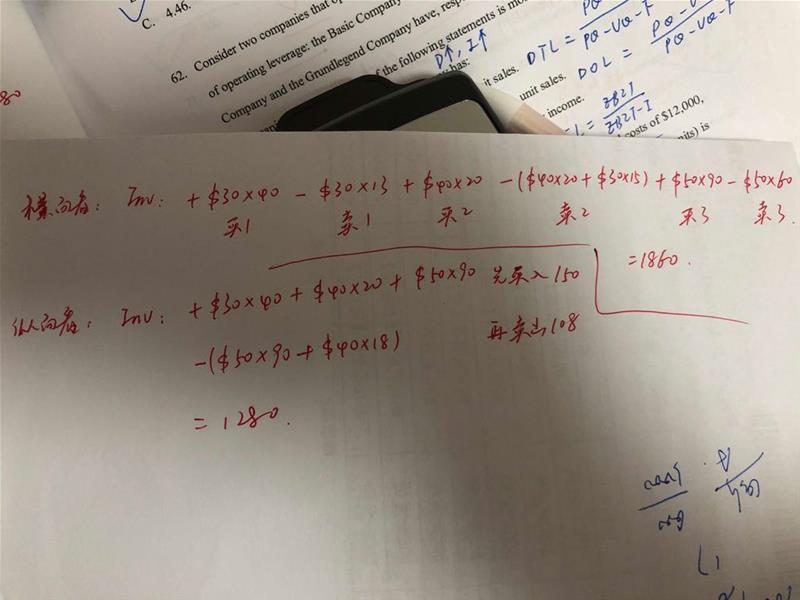 C. 4.46.
62. Consider two companies that op
of operating leverage: the Basic Company
Company and the Grundlegend Company have, resp
of the following statements is mo
D↑, I↑
has:
it sales.
unit sales.
income.
costs of $12,000,
nits) is
DTL = PQ-VQ-F
DOL = PQ-VQ-F
= EBIT / EBIT-I
80
横向看: Inv: + $30×40 - $30×13 + $40×20 - ($40×20 + $30×15) + $50×90 - $50×60
买1 卖1 买2 卖2 买3 卖3.
= 1860.
纵向看: Inv: + $30×40 + $40×20 + $50×90 先买入150
- ($50×90 + $40×18) 再卖出108
= 1280.